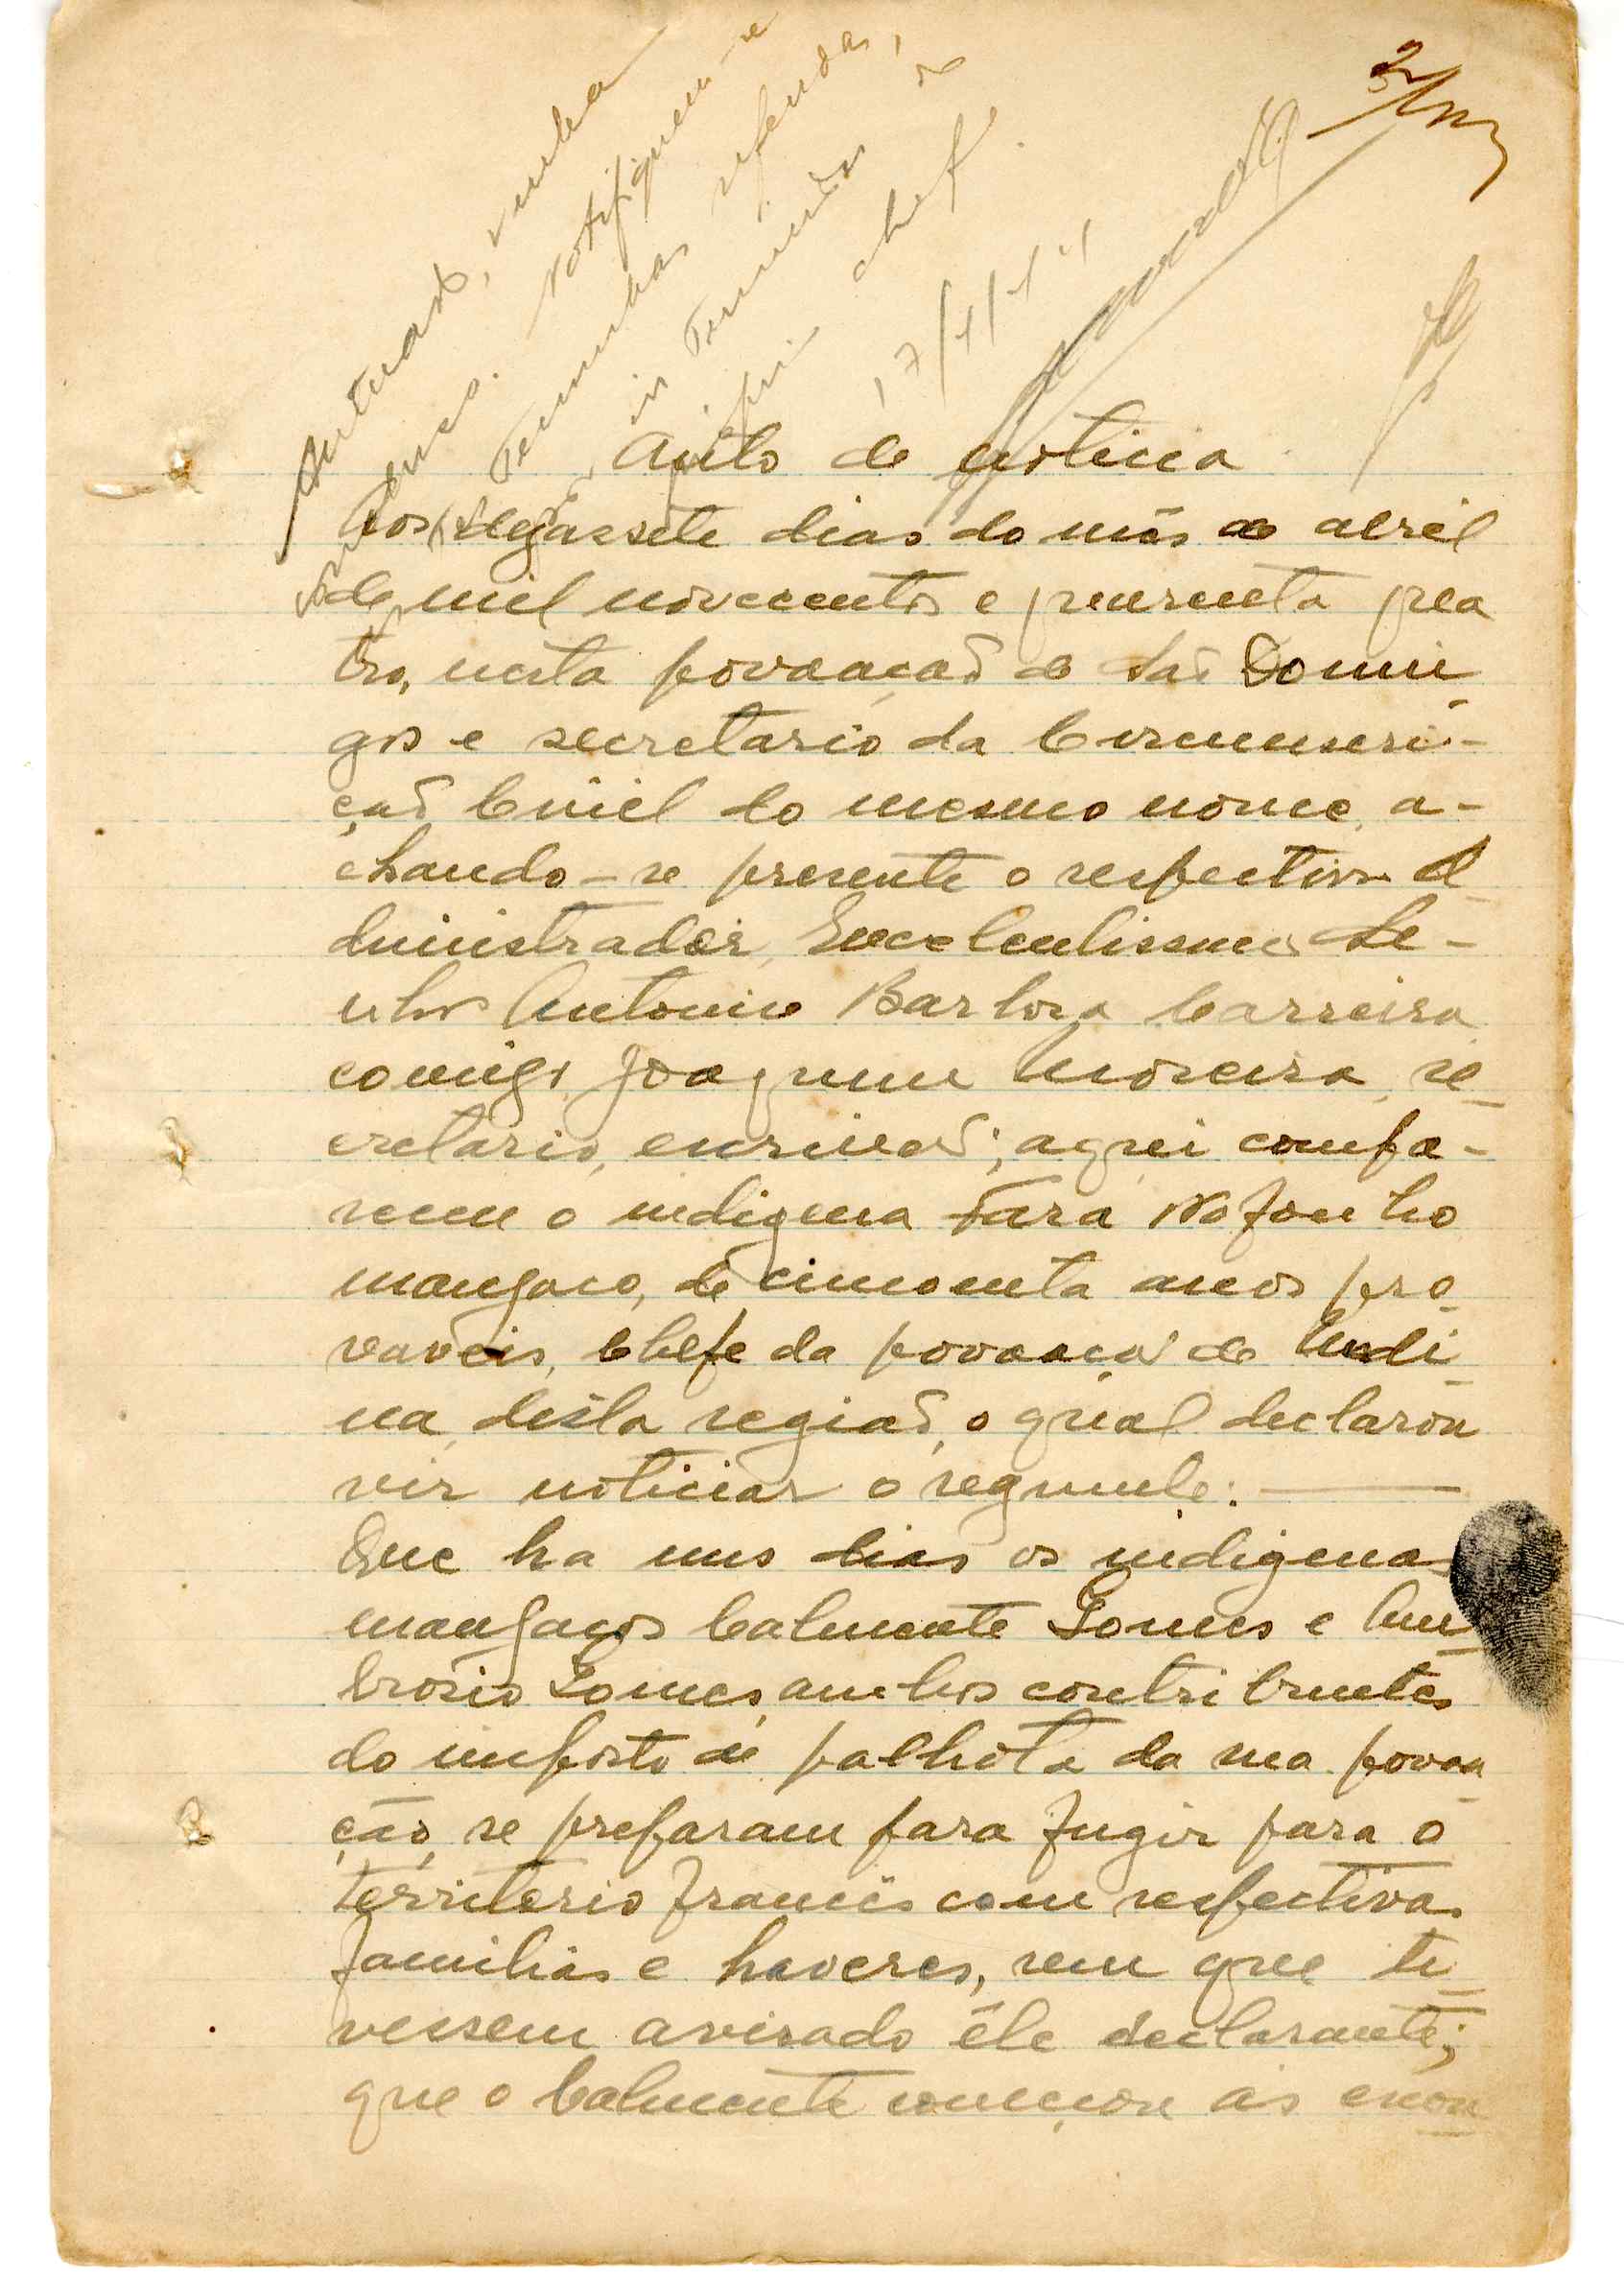 Autuado, venha
concluso. Notifiquem-se
as Testemunhas referidas,
in Termos de
chefe.
17/4/44
Auto de noticia
Aos dezassete dias do mês de abril
de mil novecentos e quarenta qua
tro, nesta povoação de São Domin
gos e secretario da Circunscri-
ção Civil do mesmo nome, a-
chando-se presente o respectivo A
dministrador, Excelentissimo Se-
nhor Antonio Barbosa Carreira
comigo, Joaquim Moreira, se
cretario, escrivão; aqui compa-
receu o indigena
manjaco, de cincoenta anos pro
vaveis, Chefe da povoação de
na, desta região, o qual declarou
vir noticiar o seguinte:
Que ha uns dias os indigenas
manjacos Calmente Gomes e Am
brosio Gomes, ambos contribuintes
do imposto de palhota da sua povoa
ção, se preparam para fugir para o
territorio francês com respectivas
familias e haveres, sem que ti
vessem avisado êle declarante;
que o Calmente começou ás escon